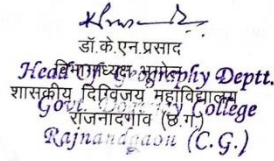 डॉ.के.एन.प्रसाद
विभागाध्यक्ष भूगोल
Head of Geography Deptt.
शासकीय दिग्विजय महाविद्यालय
Govt. College
राजनांदगांव (छ.ग.)
Rajnandgaon (C.G.)